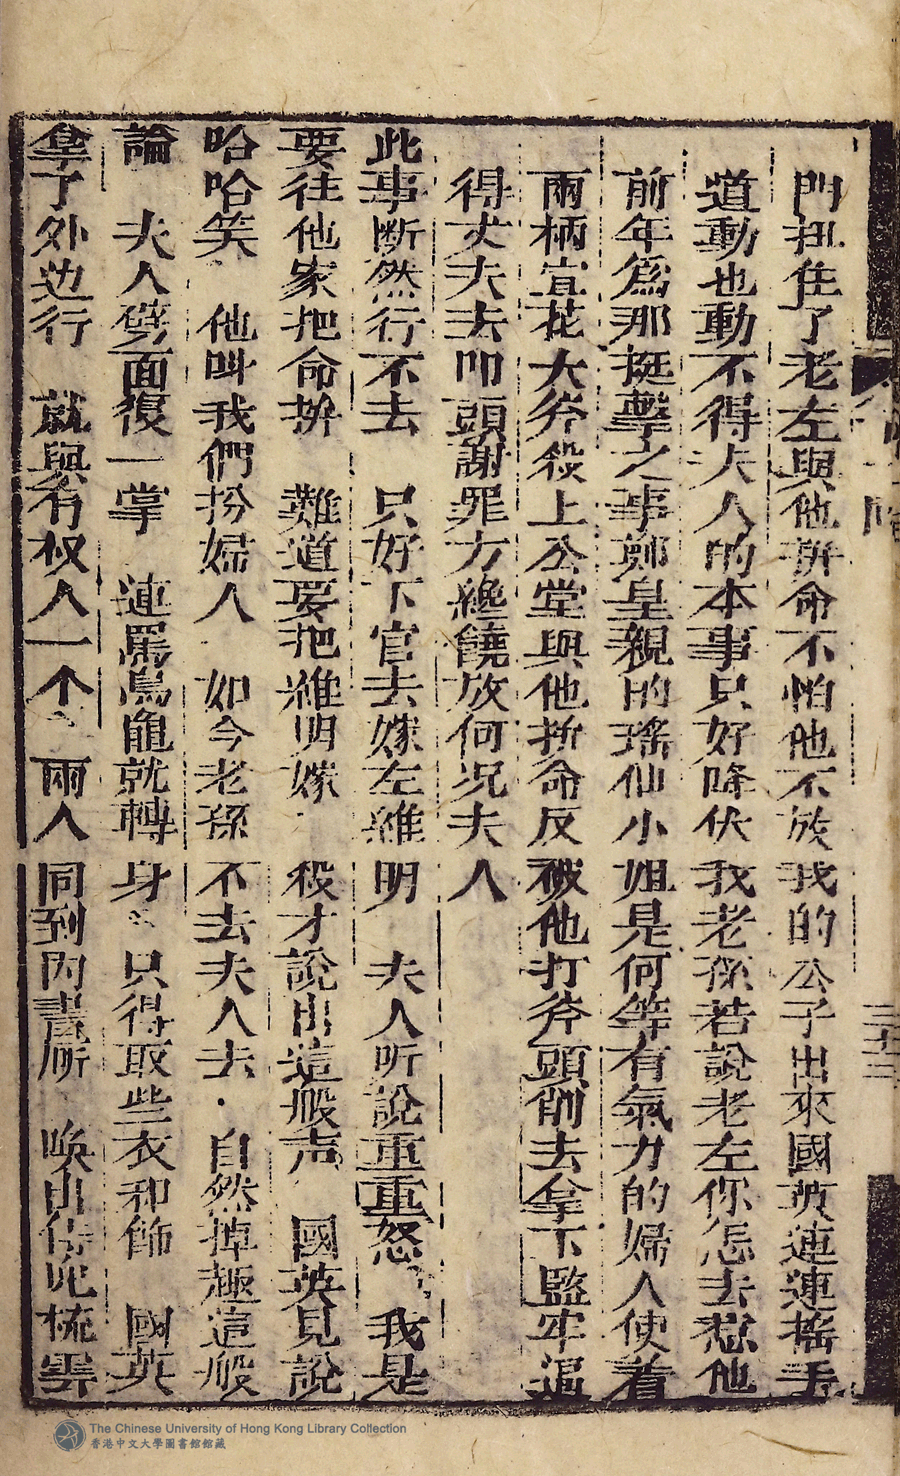 門扭住了老左與他拚命不怕他不放我的公子出來國英連連搖手
道動也動不得夫人的本事只好降伏我老孫若說老左你怎去惹他
前年爲那挺擊之事鄭皇親的瑤仙小姐是何等有氣力的婦人使着
兩柄宣花大斧殺上公堂與他拚命反被他打斧頭削去拿下監牢逼
得丈夫去叩頭謝罪方纔饒放何况夫人
此事断然行不去 只好下官去嫁左維明 夫人听說重重怒 我是
要往他家把命拚 難道要把維明嫁 從才說出這般声 國英見說
哈哈笑 他叫我們扮婦人 如今老孫不去夫人去 自然掉趣這般
論 夫人劈面復一掌 連罵烏龜就轉身 只得取些衣和飾 國英
拿了外边行 就與有权人一个 兩人同到内書所 唤出侍児梳雲
三十二
The Chinese University of Hong Kong Library Collection
香港中文大學圖書館館藏